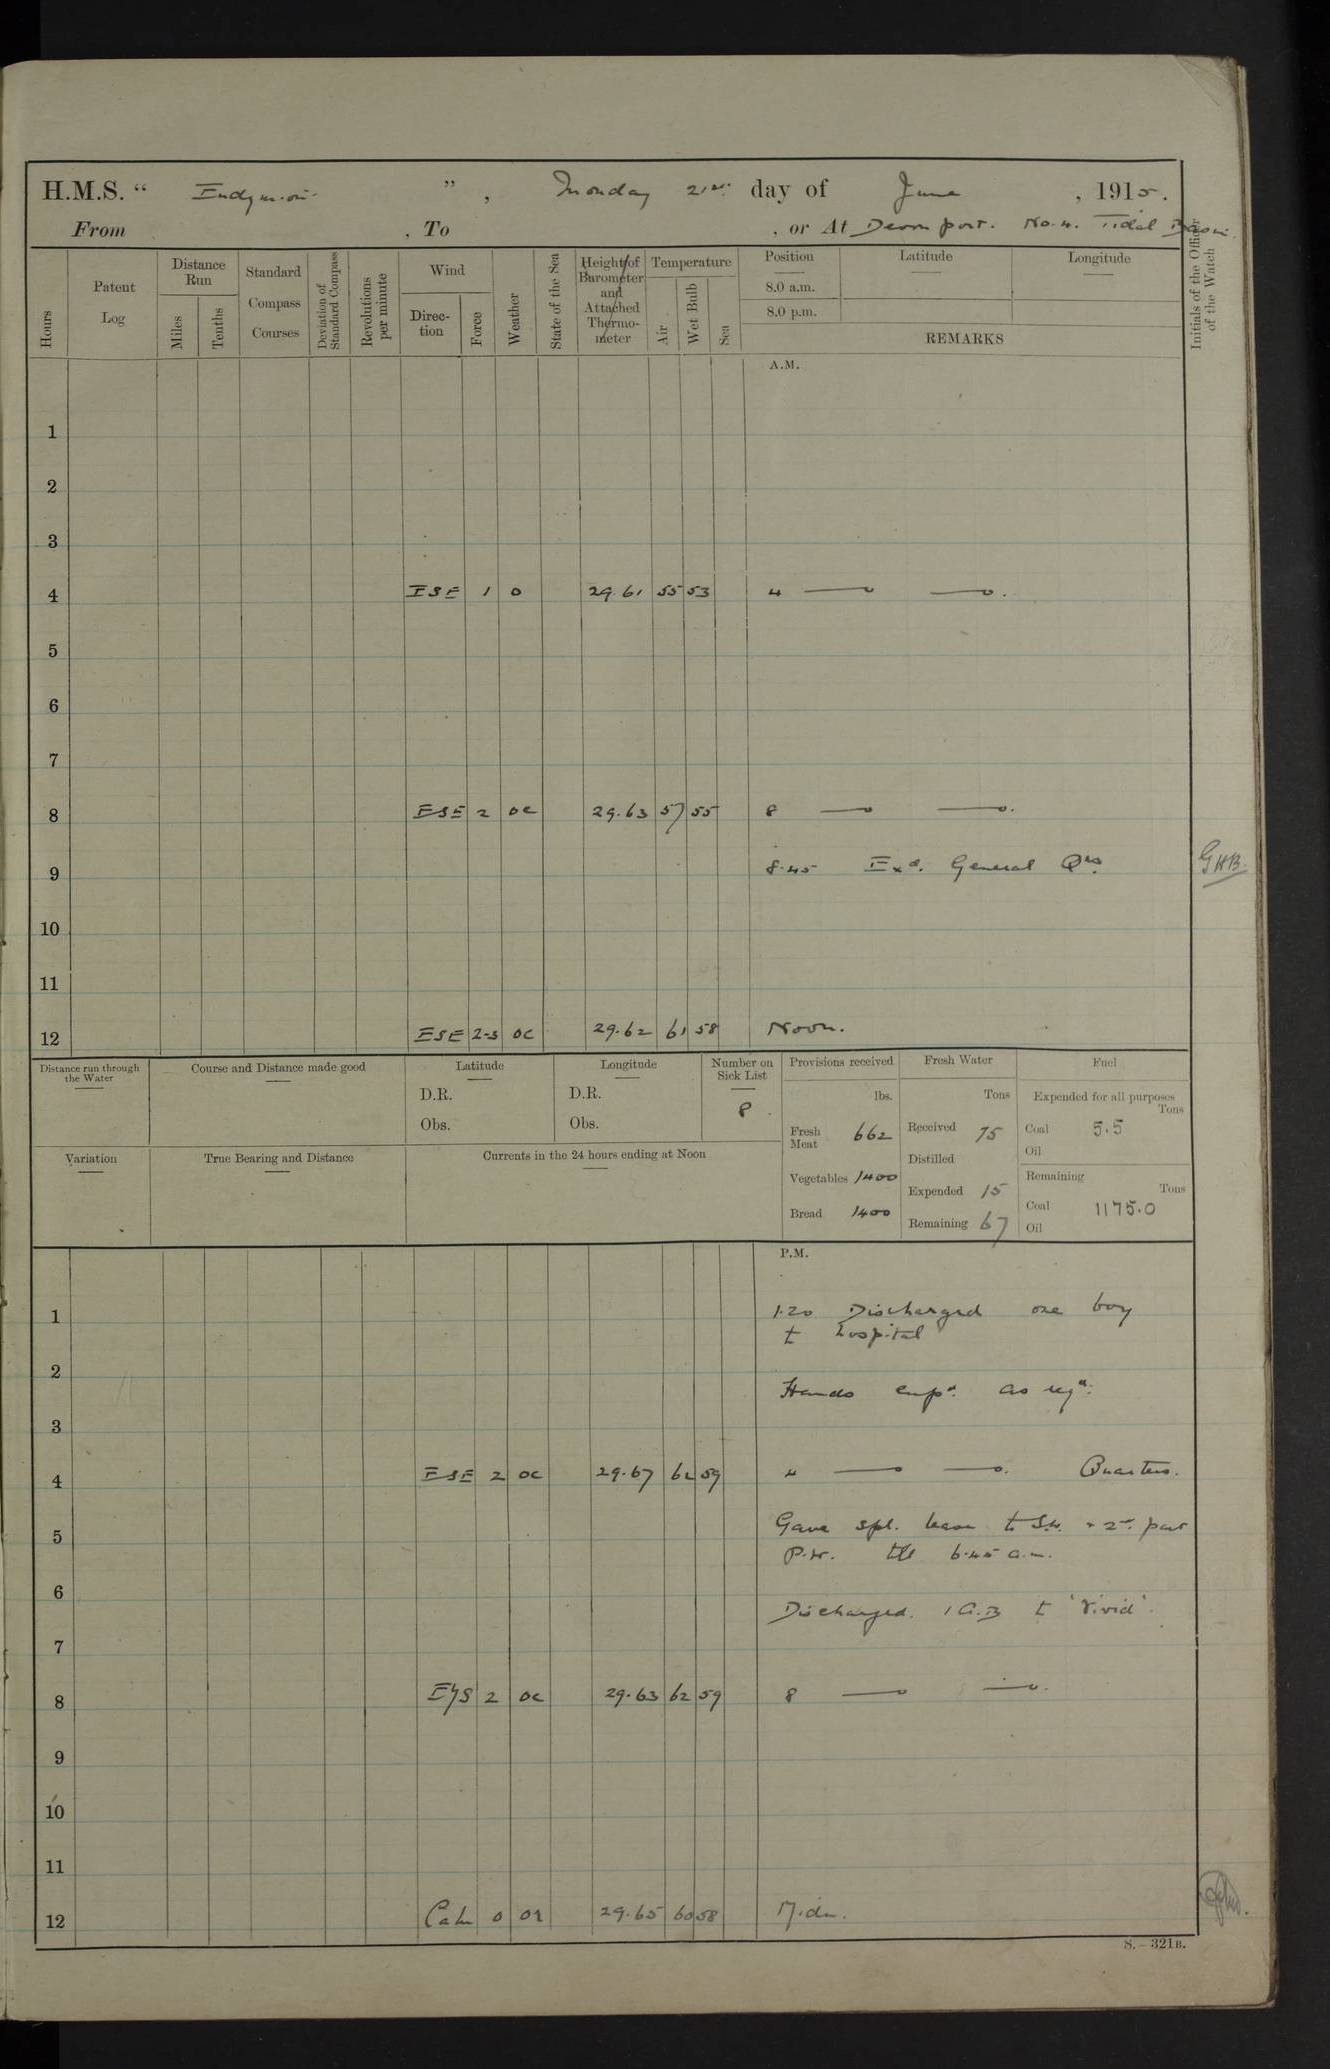 H.M.S. “ Endymion ” , Monday 21st day of June , 1915.
From , To , or At Devonport. No. 4. Tidal Basin
Hours
Patent Log
Distance Run
Miles
Tenths
Standard Compass Courses
Deviation of Standard Compass
Revolutions per minute
Wind
Direction
Force
Weather
State of the Sea
Height of Barometer and Attached Thermometer
Temperature
Air
Wet Bulb
Sea
Position
8.0 a.m.
8.0 p.m.
Latitude
Longitude
REMARKS
Initials of the Officer of the Watch
A.M.
1
2
3
4 ESE 1 O 29.61 55 53 4
5
6
7
8 ESE 2 OC 29.63 57 55 8
8.45 Exd. General Qrs.
9 GHB.
10
11
12 ESE 2-3 OC 29.62 61 58 Noon.
Distance run through the Water
Course and Distance made good
Latitude
D.R.
Obs.
Longitude
D.R.
Obs.
Number on Sick List
8
Provisions received
lbs.
Fresh Meat 662
Vegetables 1400
Bread 1400
Fresh Water
Tons
Received 75
Distilled
Expended 15
Remaining 67
Fuel
Expended for all purposes
Tons
Coal 5.5
Oil
Remaining
Tons
Coal 1175.0
Oil
Variation
True Bearing and Distance
Currents in the 24 hours ending at Noon
P.M.
1 1.20 Discharged one boy
t hospital
2
Hands empd. as reqd.
3
4 ESE 2 OC 29.67 62 59 4 Quarters.
Gave spl. leave to & 2nd part
5
P.W. till 6.45 a.m.
6
Discharged. 1 A.B t 'Vivid'.
7
8 E by S 2 OC 29.63 62 59 8
9
10
11
12 Calm 0 OR 29.65 60 58 Midn.
S. – 321B.